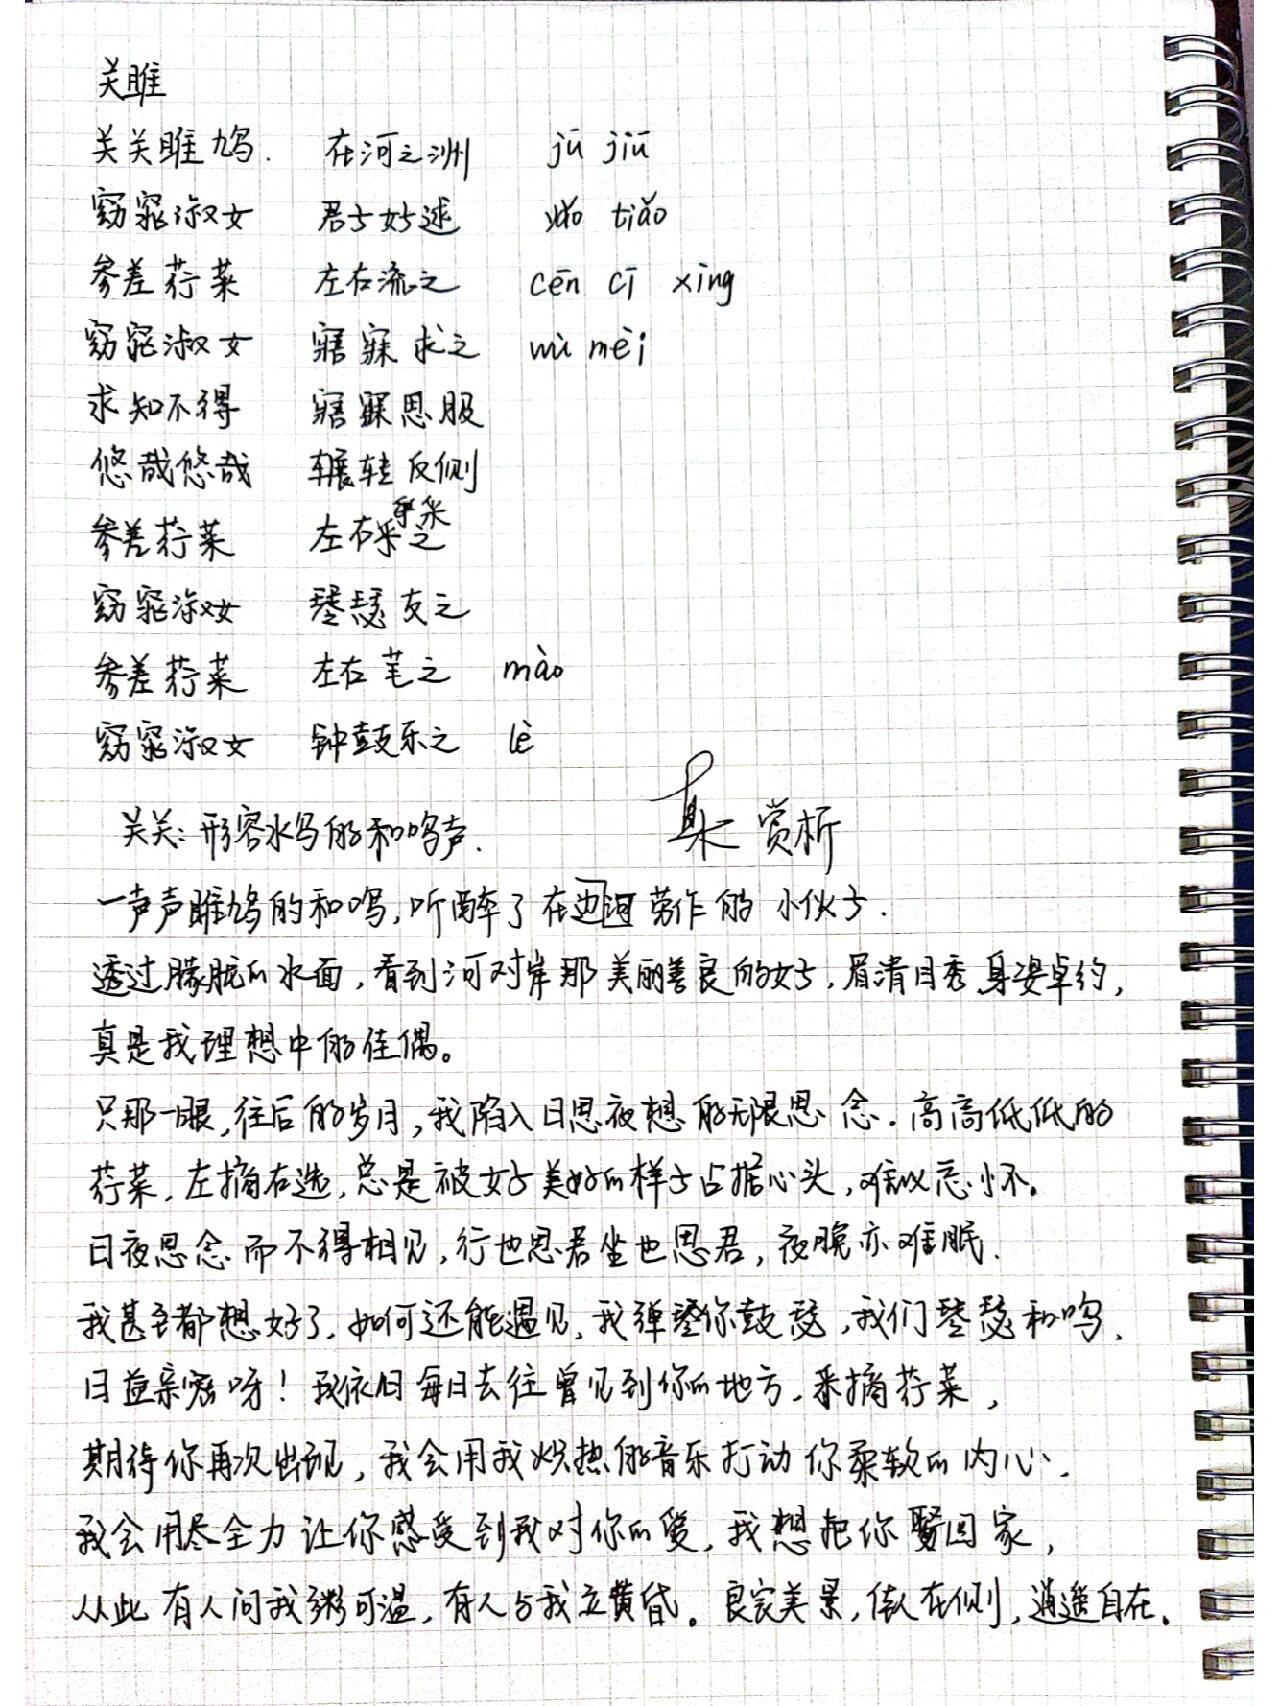 关雎
关关雎鸠. 在河之洲 jū jiū
窈窕淑女 君子好逑 yǎo tiǎo
参差荇菜 左右流之 cēn cī xìng
窈窕淑女 寤寐求之 wù mèi
求知不得 寤寐思服
悠哉悠哉 辗转反侧
参差荇菜 左右采之 采
窈窕淑女 琴瑟友之
参差荇菜 左右芼之 mào
窈窕淑女 钟鼓乐之 lè
关关: 形容水鸟的和鸣声. 赏析
一声声雎鸠的和鸣, 听醉了在边河劳作的小伙子.
透过朦胧的水面, 看到河对岸那美丽善良的女子, 眉清目秀, 身姿卓约,
真是我理想中的佳偶。
只那一眼, 往后的岁月, 我陷入日思夜想的无限思念. 高高低低的
荇菜, 左摘右选, 总是被女子美好的样子占据心头, 难以忘怀。
日夜思念而不得相见, 行也思君坐也思君, 夜晚亦难眠.
我甚至都想好了, 如何还能遇见, 我弹琴你鼓瑟, 我们琴瑟和鸣,
日益亲密呀! 我依旧每日去往曾见到你的地方, 采摘荇菜,
期待你再次出现, 我会用我炽热的音乐打动你柔软的内心.
我会用尽全力让你感受到我对你的爱, 我想把你娶回家,
从此有人问我粥可温, 有人与我立黄昏。良宸美景, 依人在侧, 逍遥自在。